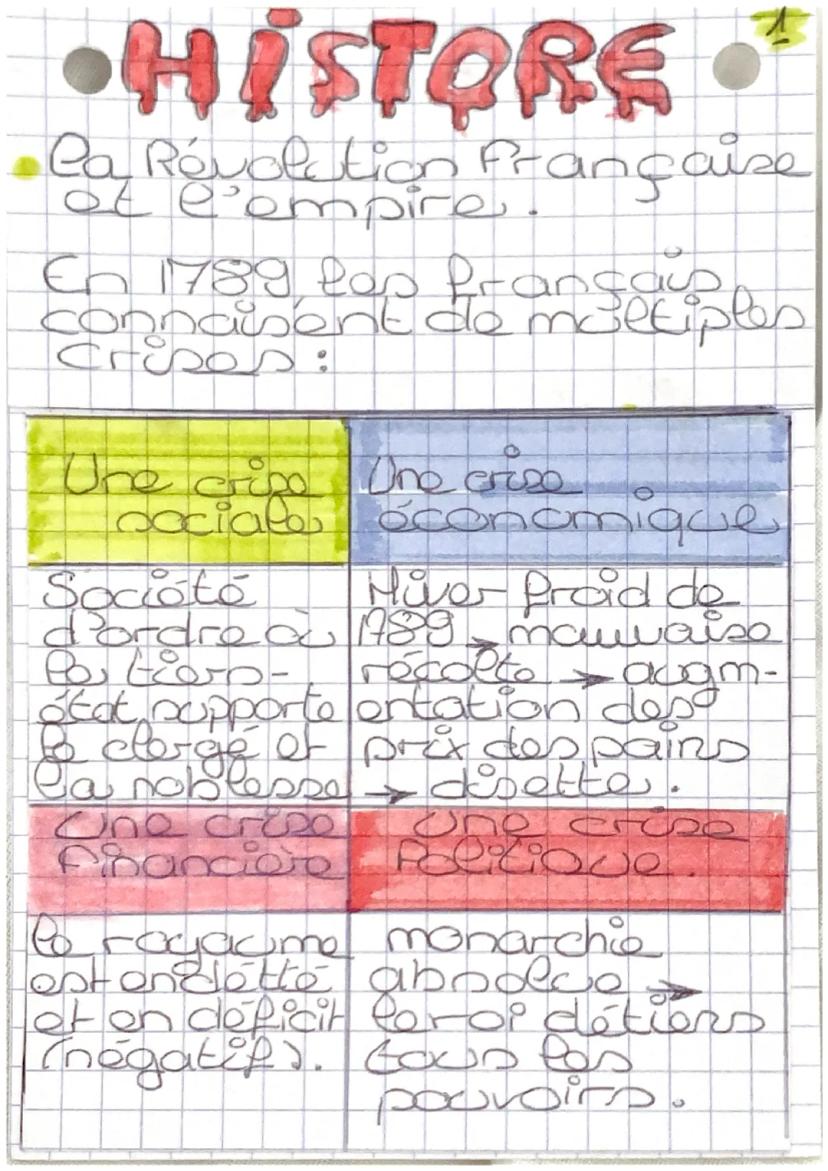 1
HiSTORE
la Révolution Française
et l'empire.
En 1789 les français
connaisent de moltiples
crises :
Une crise
sociale
Une crise
économique
Société
d'ordre où
le tiers-
état supporte
le clergé et
la noblesse
Hiver froid de
1789 → mauvaise
récolte → augm-
entation des
prix des pains
→ disette.
Une crise
Financière
Une crise
Politique.
le royaume
est endétté
et en déficit
(négatif).
monarchie
absolue →
le roi détiens
tous les
pouvoirs.